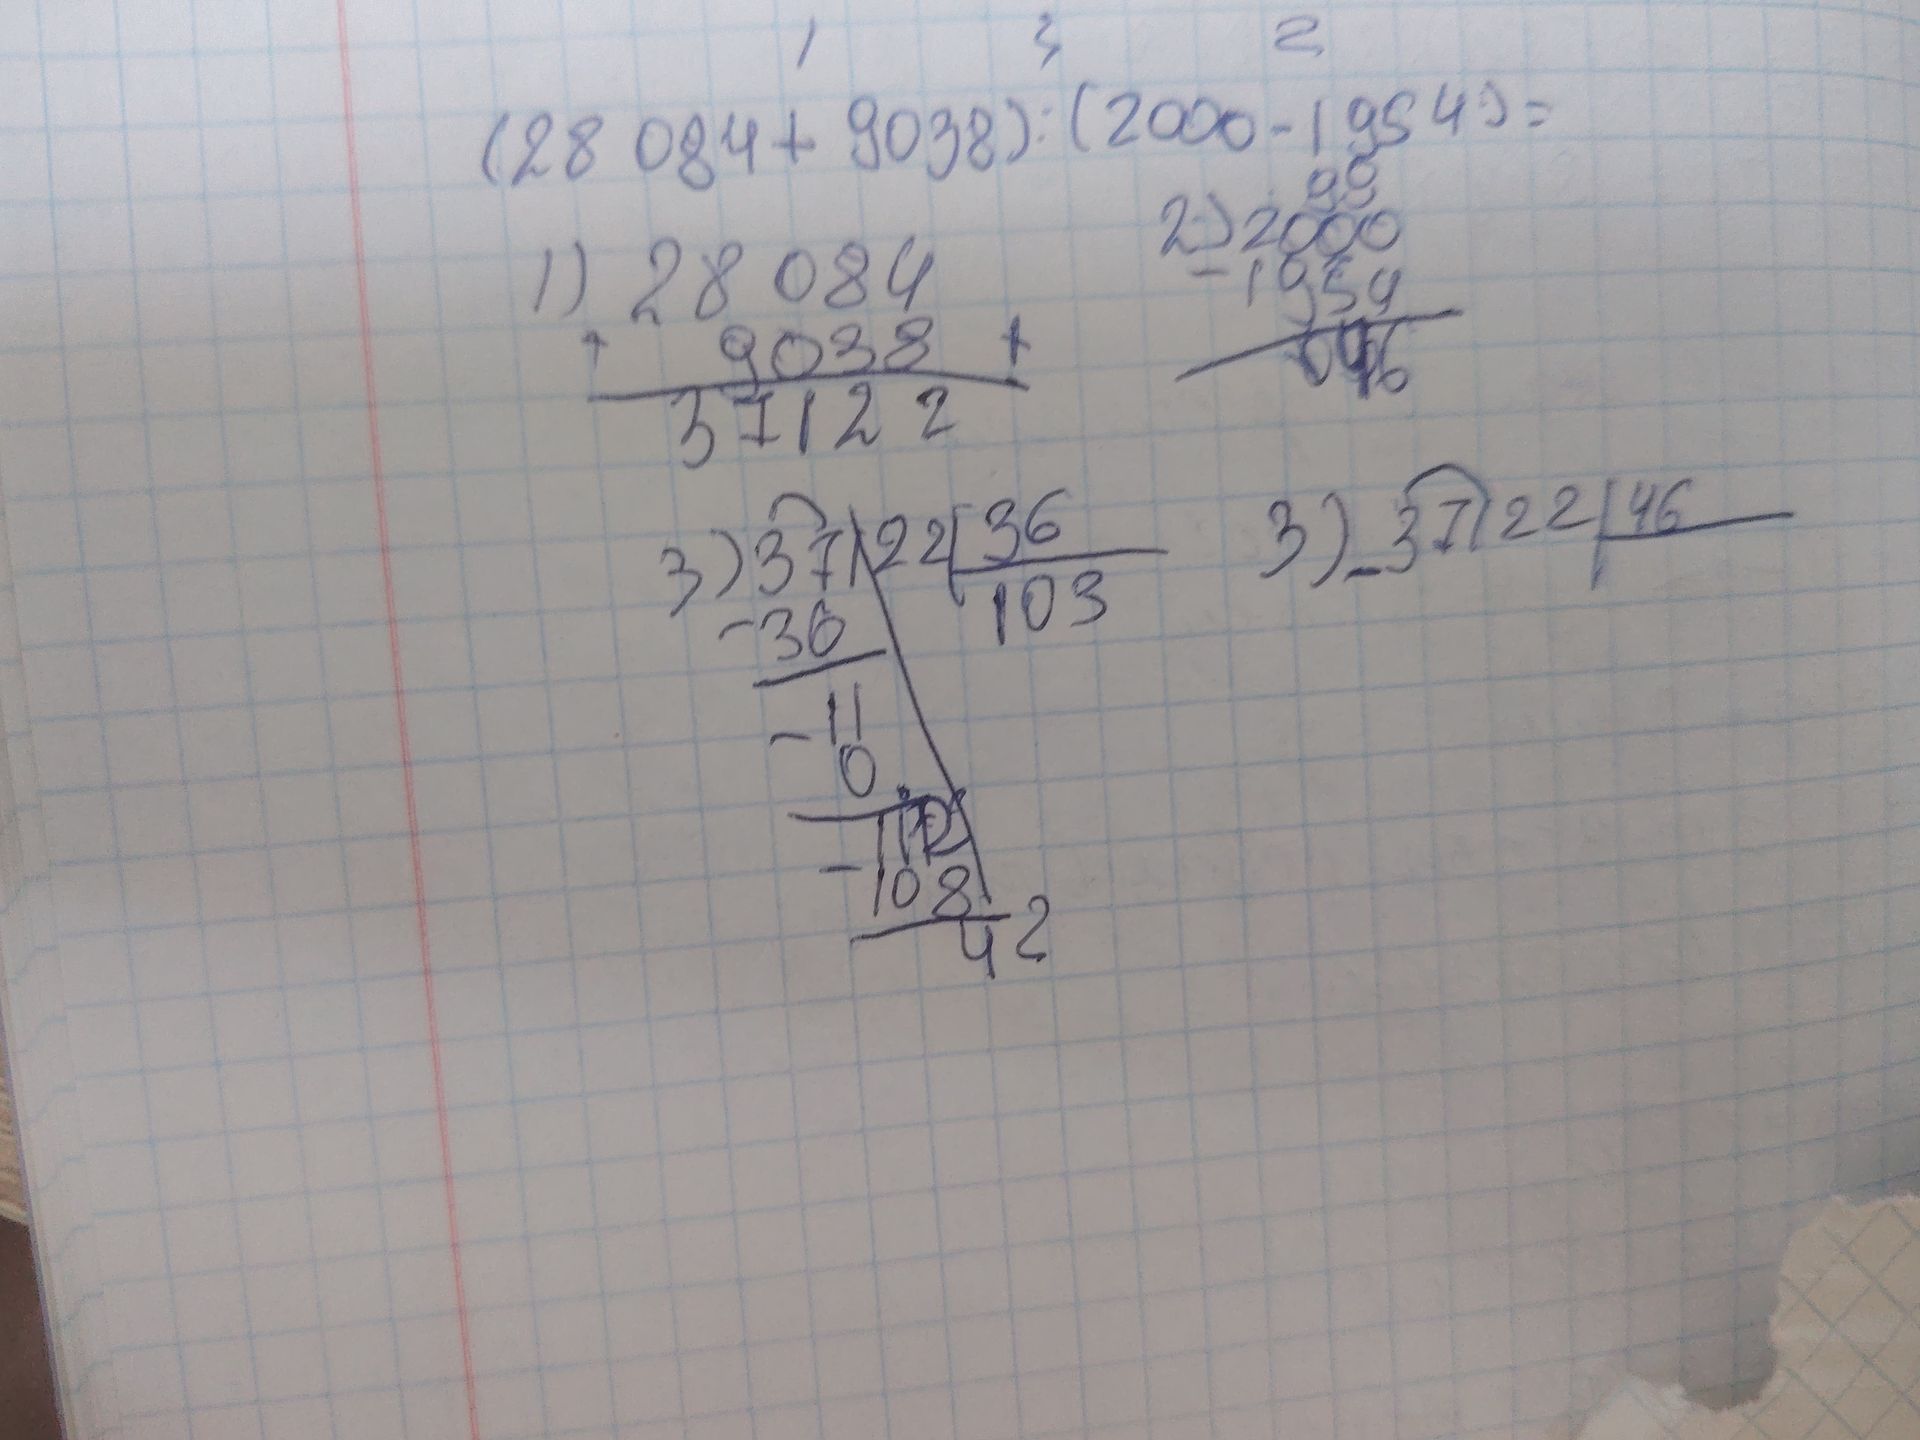 1 3 2
(28 084+ 9038):(2000-1954)=
1) 28 084
+ 9038 +
37122
99
2) 2000
- 1954
046
3) 37122 36
103
-36
- 11
0
- 112
108
42
3) -37122 46